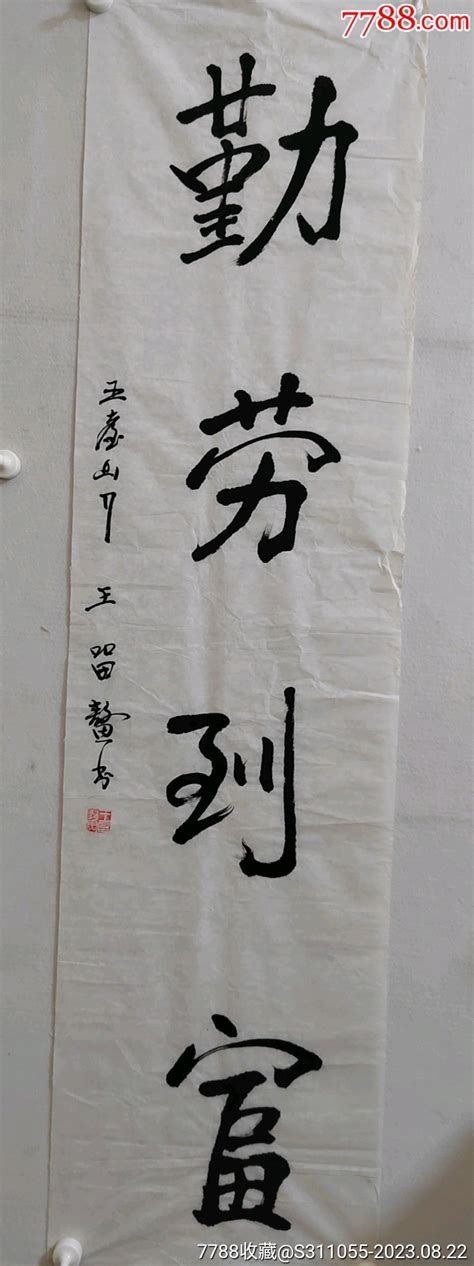 7788.com
勤劳到富
五臺山
王留鳌书
7788收藏@S311055-2023.08.22